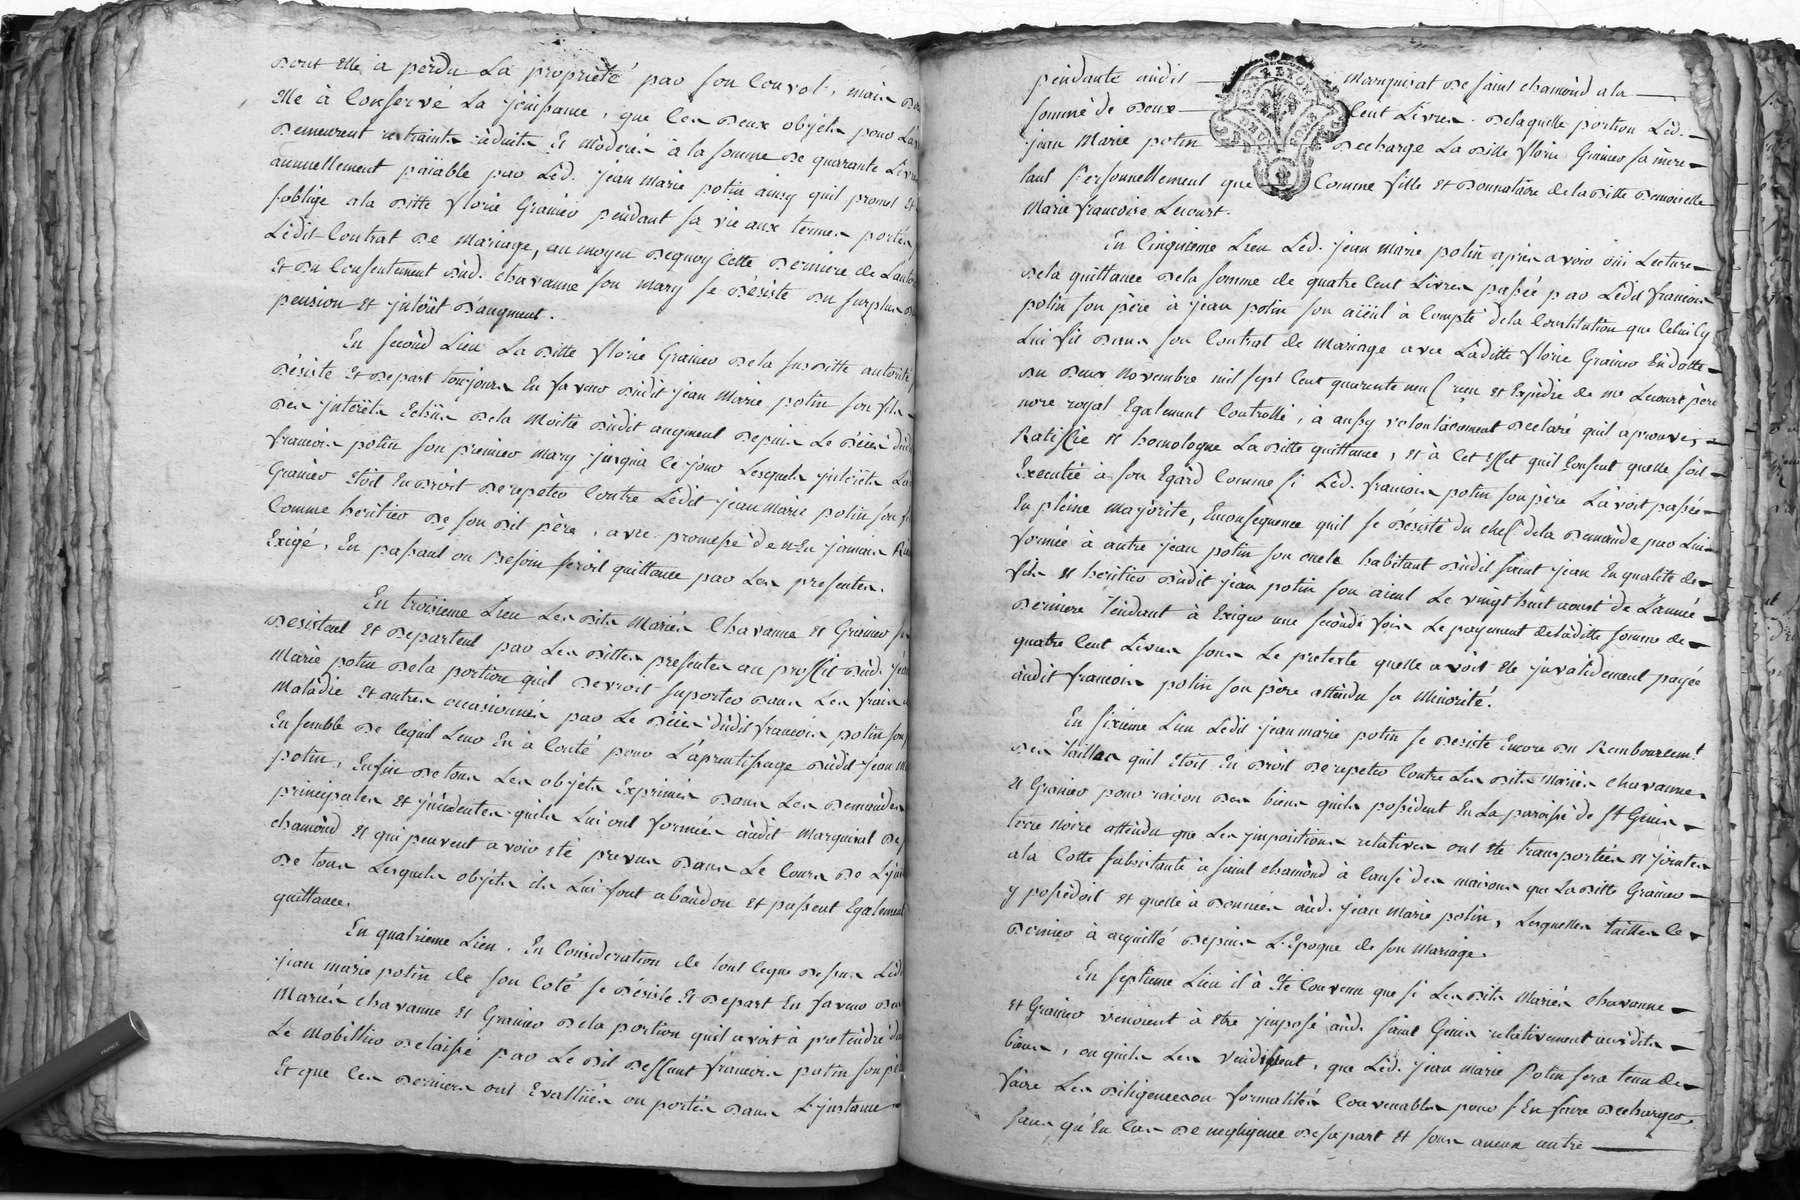 dont Elle a perdu La propriété par son Convol, mais d
Elle à Conservé La jouissance, que les deux objets pour
demeurent restraints réduits Et modérés à la somme de quarante Livres
annuellement païable par Led. jean marie potin ainsy quil promet Et
soblige a la ditte florie Granier pendant sa vie aux termes portés
Ledit Contrat de mariage, au moyen dequoy Cette derniere de Lauto
Et du Consentement dud. chavanne son mary se désiste du surplus
pension Et jntérêt d'augment.
En second Lieu La ditte florie Granier de la susditte autorité
désiste Et depart toujours En faveur dudit jean Marie potin son fils
des jntérêts Echus de la Moitié dudit augment depuis Le décès dud
francois potin son premier mary jusqua Ce jour Lesquels jntérêts La
Granier Etoit En droit de repeter Contre Ledit jean marie potin son f
Comme heritier de son dit père, avec promesse de n'En jamais Rien
Exigé, En passant ou Besoin seroit quittance par Les presentes.
En troisieme Lieu Les dits Mariés Chavanne et Granier se
désistent Et departent par Les dittes presentes au proffit dud. jean
Marie potin de la portion quil devroit suporter dans Les frais
Maladie Et autres occasionnés par Le décès dudit francois potin son
Ensemble de Ceque Leur En à Couté pour L'aprentissage dudit jean M
potin, Enfin de tous Les objets Exprimés dans Les demandes
principales et jncidentes quils Lui ont formées audit Marquisat de
chamond et qui peuvent avoir Eté prevus dans Le Cours de L'jns
de tous Lesquels objets ils Lui font abandon Et passent Egalement
quittance.
En quatrieme Lieu, En Consideration de tout Ceque dessus Led
jean marie potin de son Coté se désiste Et depart En faveur des
Mariés chavanne et Granier de la portion quil avoit à pretendre d
Le Mobillier delaissé par Le dit deffunt francois potin son pè
Et que Ces derniers ont Evallués ou portés dans L'jnstance
pendante audit Marquisat de saint chamond a la
somme de deux Cent Livres, de laquelle portion Led.
jean Marie potin decharge La ditte florie Granier sa mère
tant Personnellement que Comme fille et donnataire de la ditte demoiselle
Marie francoise Lecourt.
En Cinquieme Lieu Led. jean marie potin après avoir oüi Lecture
de la quittance de la somme de quatre Cent Livres passée par Ledit francois
potin son père à jean potin son aïeul à Compte de la Constitution que Celui Cy
Lui fit dans son Contrat de Mariage avec Laditte florie Granier En datte
du deux Novembre mil sept Cent quarente neuf reçu et Expedié de me Lecourt père
nore royal Egalement Controllé, a aussy volontairement declaré quil aprouve,
Ratiffie et homologue La ditte quittance, et à Cet Effet quil Consent quelle soit
Executée à son Egard Comme si Led. francois potin son père L'avoit passée
En pleine majorité, Enconsequence quil se désiste du chef de la demande par Lui
formée à autre jean potin son oncle habitant dudit saint jean En qualité de
fils et heritier dudit jean potin son aieul Le vingt huit aoust de L'année
derniere tendant à Exiger une seconde fois Le payement de Laditte somme de
quatre Cent Livres sous Le pretexte quelle avoit Eté jnvalidement payée
audit francois potin son père attendu sa Minorité.
En sixieme Lieu Ledit jean marie potin se desiste Encore du Rembourcemt
des tailles quil Etoit En droit de repeter Contre Les dits Mariés chavanne
et Granier pour raison des biens quils possedent En La paroisse de St Genis
terre noire attendu que Les jmpositions relatives ont Eté transportées et jointes
a la Cotte subsistante à saint chamond à Cause des maisons que La ditte Granier
y possédoit et quelle à données aud. jean Marie potin, Lesquelles tailles Ce
dernier à acquitté depuis L'Epoque de son Mariage.
En septieme Lieu il à Eté Convenu que si Les dits Mariés chavanne
et Granier venoient à Etre jmposé aud. saint Genis relativement auxdits
biens, ou quils Les vendissent, que Led. jean marie Potin sera tenu de
faire Les diligences ou formalités Convenables pour s'En faire decharger
sans qu'En Cas de negligence de sa part Et sous aucun autre